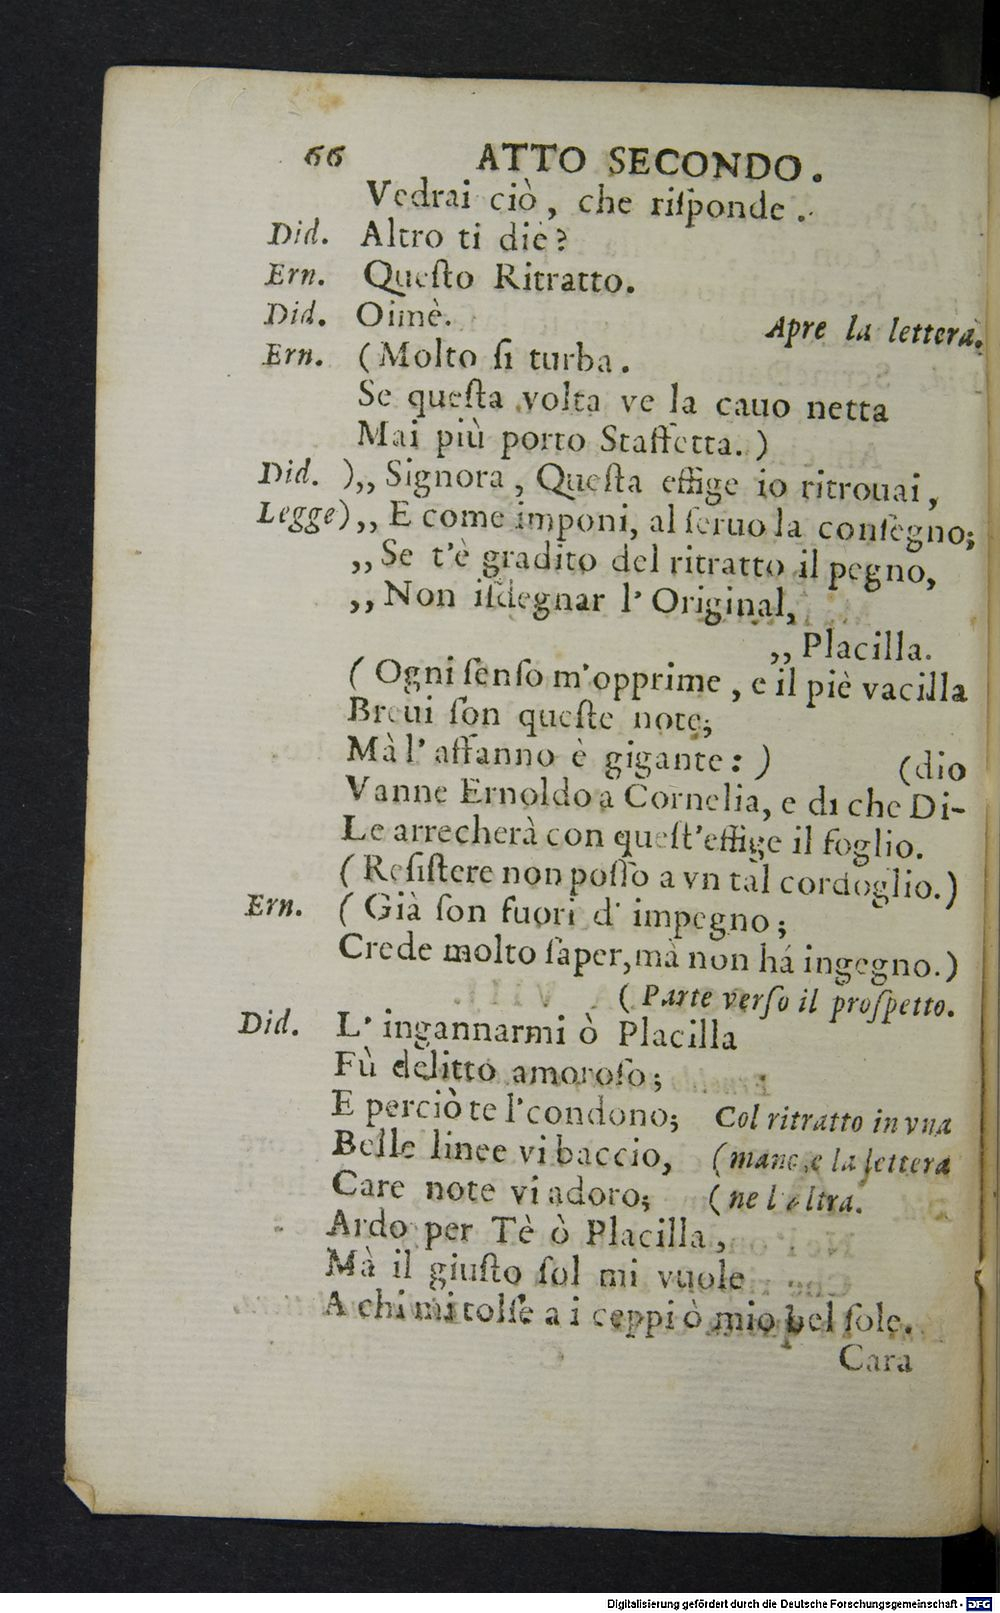 66 ATTO SECONDO.
Vedrai ciò, che riſponde.
Did. Altro ti diè?
Ern. Queſto Ritratto.
Did. Oimè. Apre la lettera.
Ern. (Molto ſi turba.
Se queſta volta ve la cauo netta
Mai più porto Staffetta.)
Did. ),, Signora, Queſta effige io ritrouai,
Legge),, E come imponi, al ſeruo la conſegno;
,,Se t'è gradito del ritratto il pegno,
,,Non iſdegnar l'Original,
,, Placilla.
(Ogni ſenſo m'opprime, e il piè vacilla
Breui ſon queſte note;
Mà l'affanno è gigante:) (dio
Vanne Ernoldo a Cornelia, e di che Di-
Le arrecherà con queſt'effige il foglio.
(Reſiſtere non poſſo a vn tal cordoglio.)
Ern. (Già ſon fuori d'impegno;
Crede molto ſaper, mà non há ingegno.)
(Parte verſo il proſpetto.
Did. L'ingannarmi ò Placilla
Fù delitto amoroſo;
E perciò te l'condono; Col ritratto in vna
Belle linee vi baccio, (mano, e la lettera
Care note vi adoro; (nel'altra.
Ardo per Tè ò Placilla,
Mà il giuſto ſol mi vuole
A chi mi tolſe a i ceppi ò mio bel ſole.
Cara
Digitalisierung gefördert durch die Deutsche Forschungsgemeinschaft - DFG